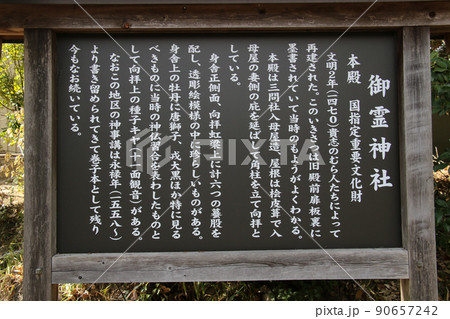 御霊神社
本殿 国指定重要文化財
文明2年(一四七〇)貴志のむら人たちによって
再建された。このいきさつは旧殿前扉板裏に
墨書されていて当時のもようがよくわかる。
本殿は三間社入母屋造、屋根は桧皮葺で入
母屋の妻側の庇を延ばして角柱を立て向拝と
している。
身舎正側面、向拝虹梁上に計六つの蟇股を
配し、透彫絵模様の中に珍らしいものがある。
身舎上の牡丹に唐獅子、戎大黒ほか特に見る
べきものに当時の神仏習合を表わしたものと
して向拝上の種子キャ(十一面観音)がある。
なおこの地区の神事講は永禄年(一五五八〜)
より書き留められてきて巻子本として残り
今もなお続いている。
pixta.jp - 90657242